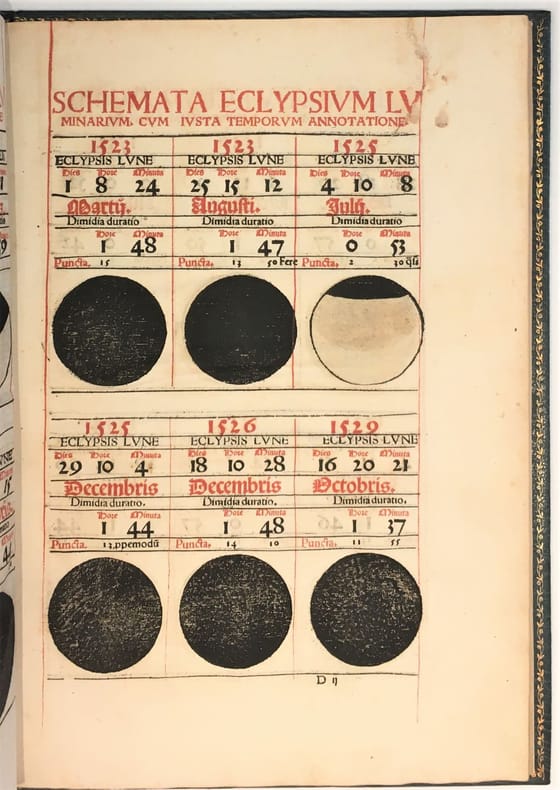 SCHEMATA ECLYPSIVM LV
MINARIVM, CVM IVSTA TEMPORVM ANNOTATIONE
1523 1523 1525
ECLYPSIS LVNE ECLYPSIS LVNE ECLYPSIS LVNE
Dies Hore Minuta Dies Hore Minuta Dies Hore Minuta
1 8 24 25 15 12 4 10 8
Martij. Augusti. Julij.
Dimidia duratio Dimidia duratio Dimidia duratio
Hore Minuta Hore Minuta Hore Minuta
1 48 1 47 0 53
Puncta. 15 Puncta. 13 50 Fere Puncta. 2 30 q̃si
1525 1526 1529
ECLYPSIS LVNE ECLYPSIS LVNE ECLYPSIS LVNE
Dies Hore Minuta Dies Hore Minuta Dies Hore Minuta
29 10 4 18 10 28 16 20 21
Decembris Decembris Octobris.
Dimidia duratio. Dimidia duratio. Dimidia duratio.
Hore Minuta Hore Minuta Hore Minuta
1 44 1 48 1 37
Puncta. 13 ppemodũ Puncta. 14 10 Puncta. 11 55
D ij